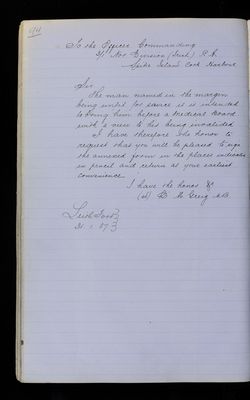 To the Officer Commanding
Spike Island Cork Harbour
Sir
The man named in the margin
being unfit for service it is intended
to bring him before a Medical Board
with a view to his being invalided
I have therefore the honor to
request that you will be pleased to sign
the annexed form in the places indicated
in pencil and return at your earliest
convenience
I have the honor &c
Leith Fort
31.1.87